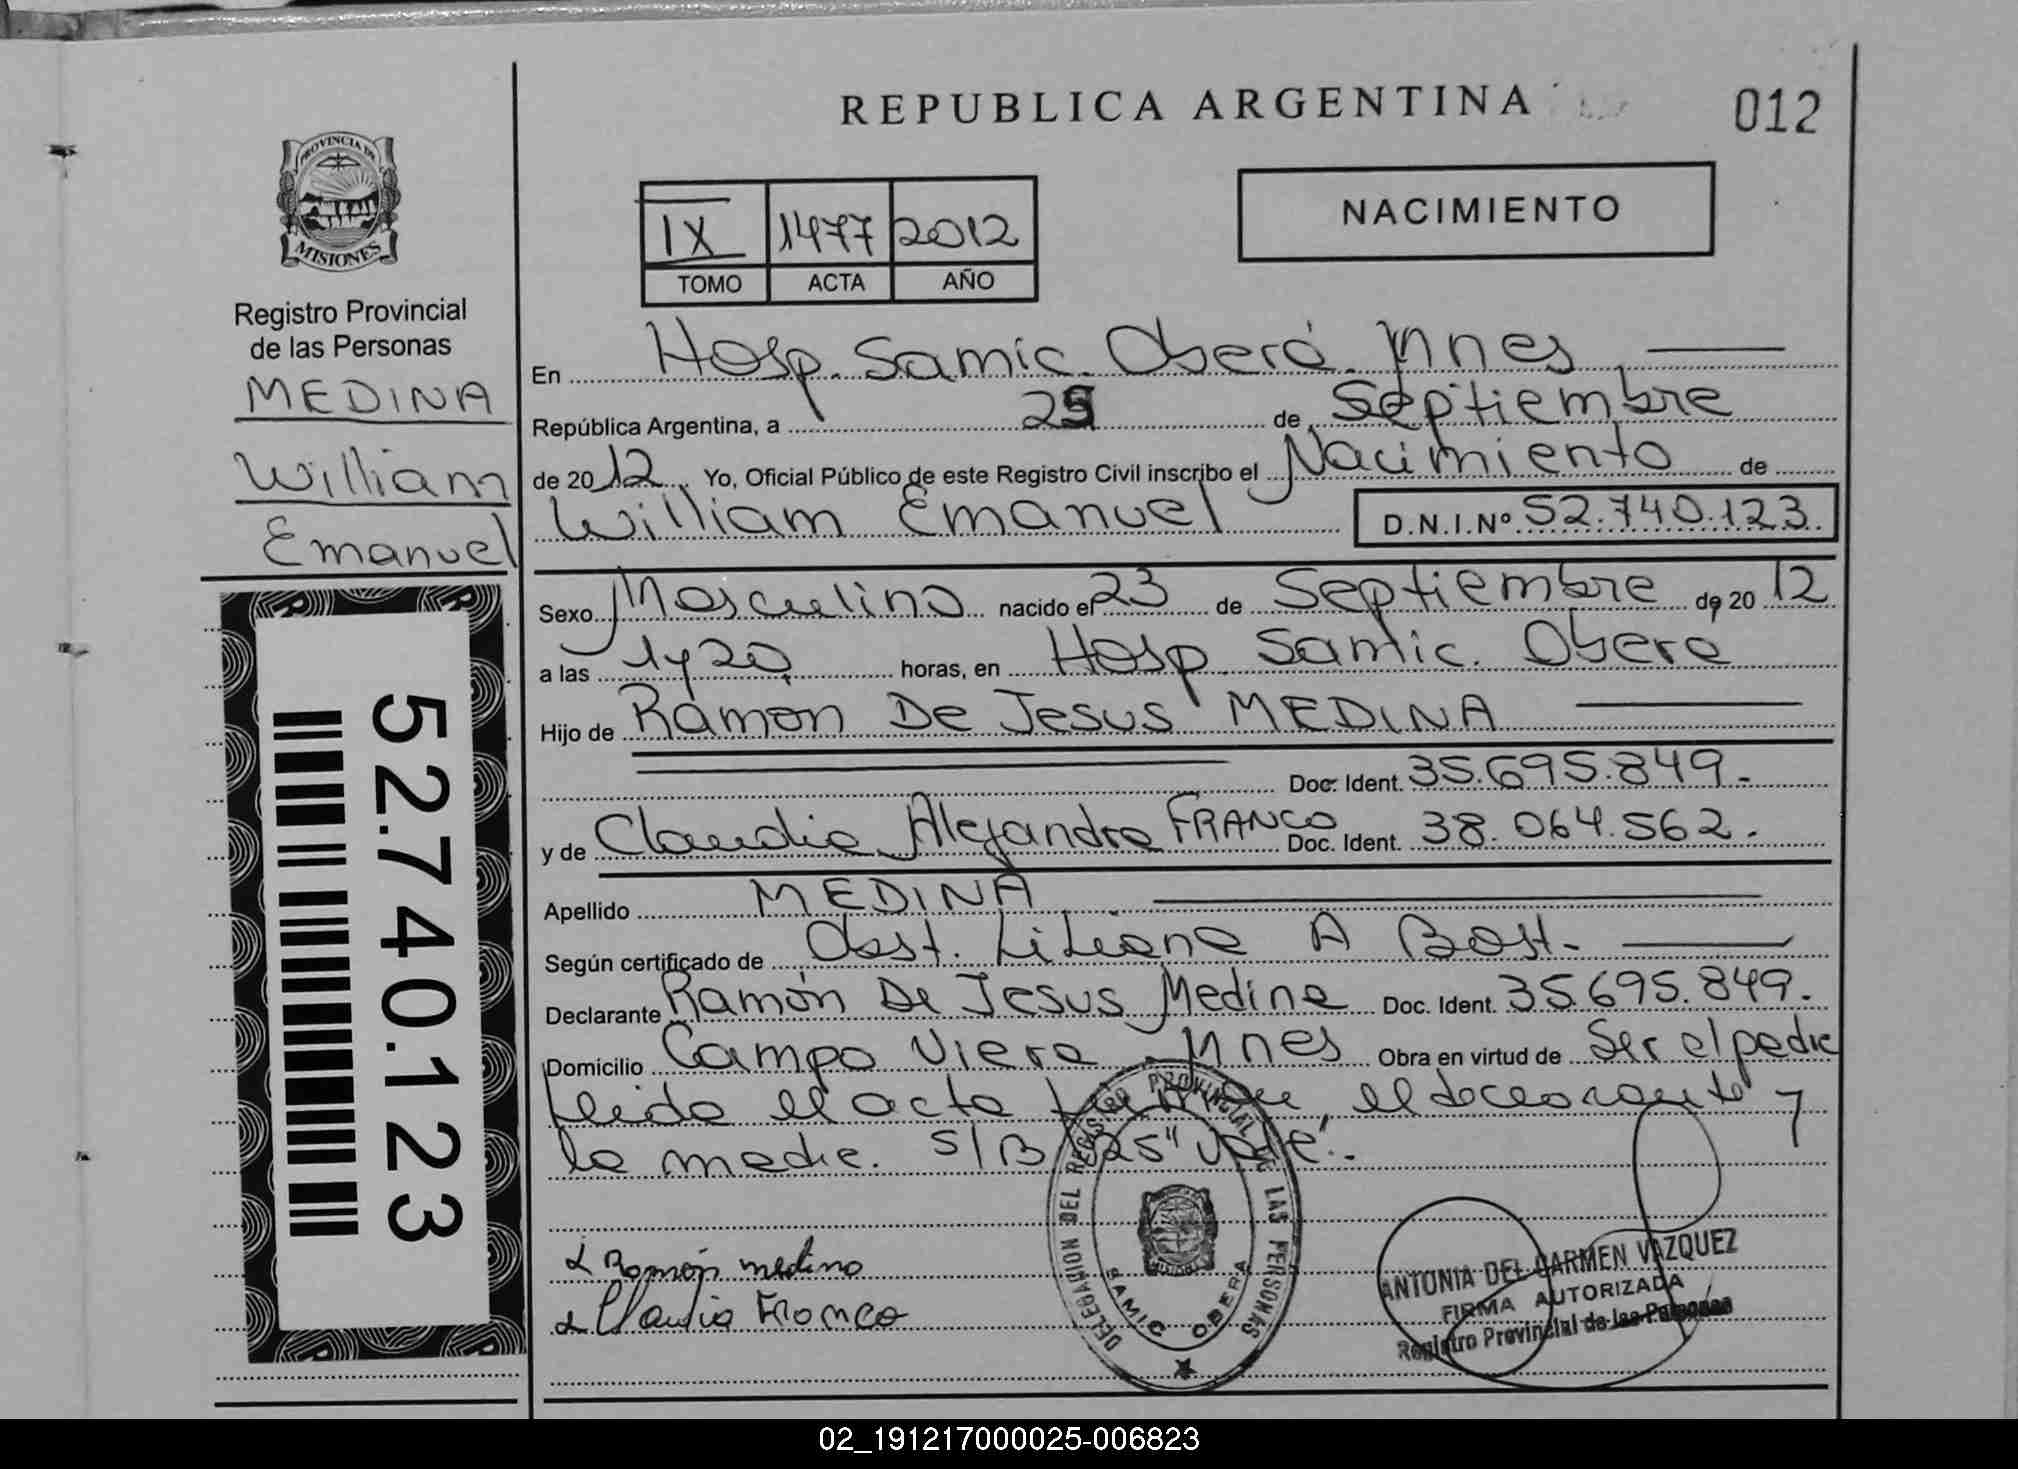 REPUBLICA ARGENTINA
012
PROVINCIA DE
MISIONES
Registro Provincial
de las Personas
MEDINA
William
Emanuel
52.740.123
IX 1477 2012
TOMO ACTA AÑO
NACIMIENTO
En Hosp. Samic. Oberá. Mnes
República Argentina, a 25 de Septiembre
de 2012 Yo, Oficial Público de este Registro Civil inscribo el Nacimiento de
William Emanuel D.N.I.Nº 52.740.123.
Sexo Masculino nacido el 23 de Septiembre de 2012
a las 1y20 horas, en Hosp Samic. Oberá
Hijo de Ramón De Jesus MEDINA
Doc. Ident. 35.695.849.
y de Claudia Alejandra FRANCO Doc. Ident. 38.064.562.
Apellido MEDINA
Según certificado de Obst. Liliana A Bost.
Declarante Ramón De Jesus Medina Doc. Ident. 35.695.849.
Domicilio Campo Viera Mnes Obra en virtud de Ser el padre
leida el acta el declarante y
la madre. S/B 25 "Vale".
Ramón medina
Claudia Franco
DELEGACION DEL REGISTRO PROVINCIAL DE LAS PERSONAS
SAMIC OBERA
ANTONIA DEL CARMEN VAZQUEZ
FIRMA AUTORIZADA
Registro Provincial de las Personas
02_191217000025-006823